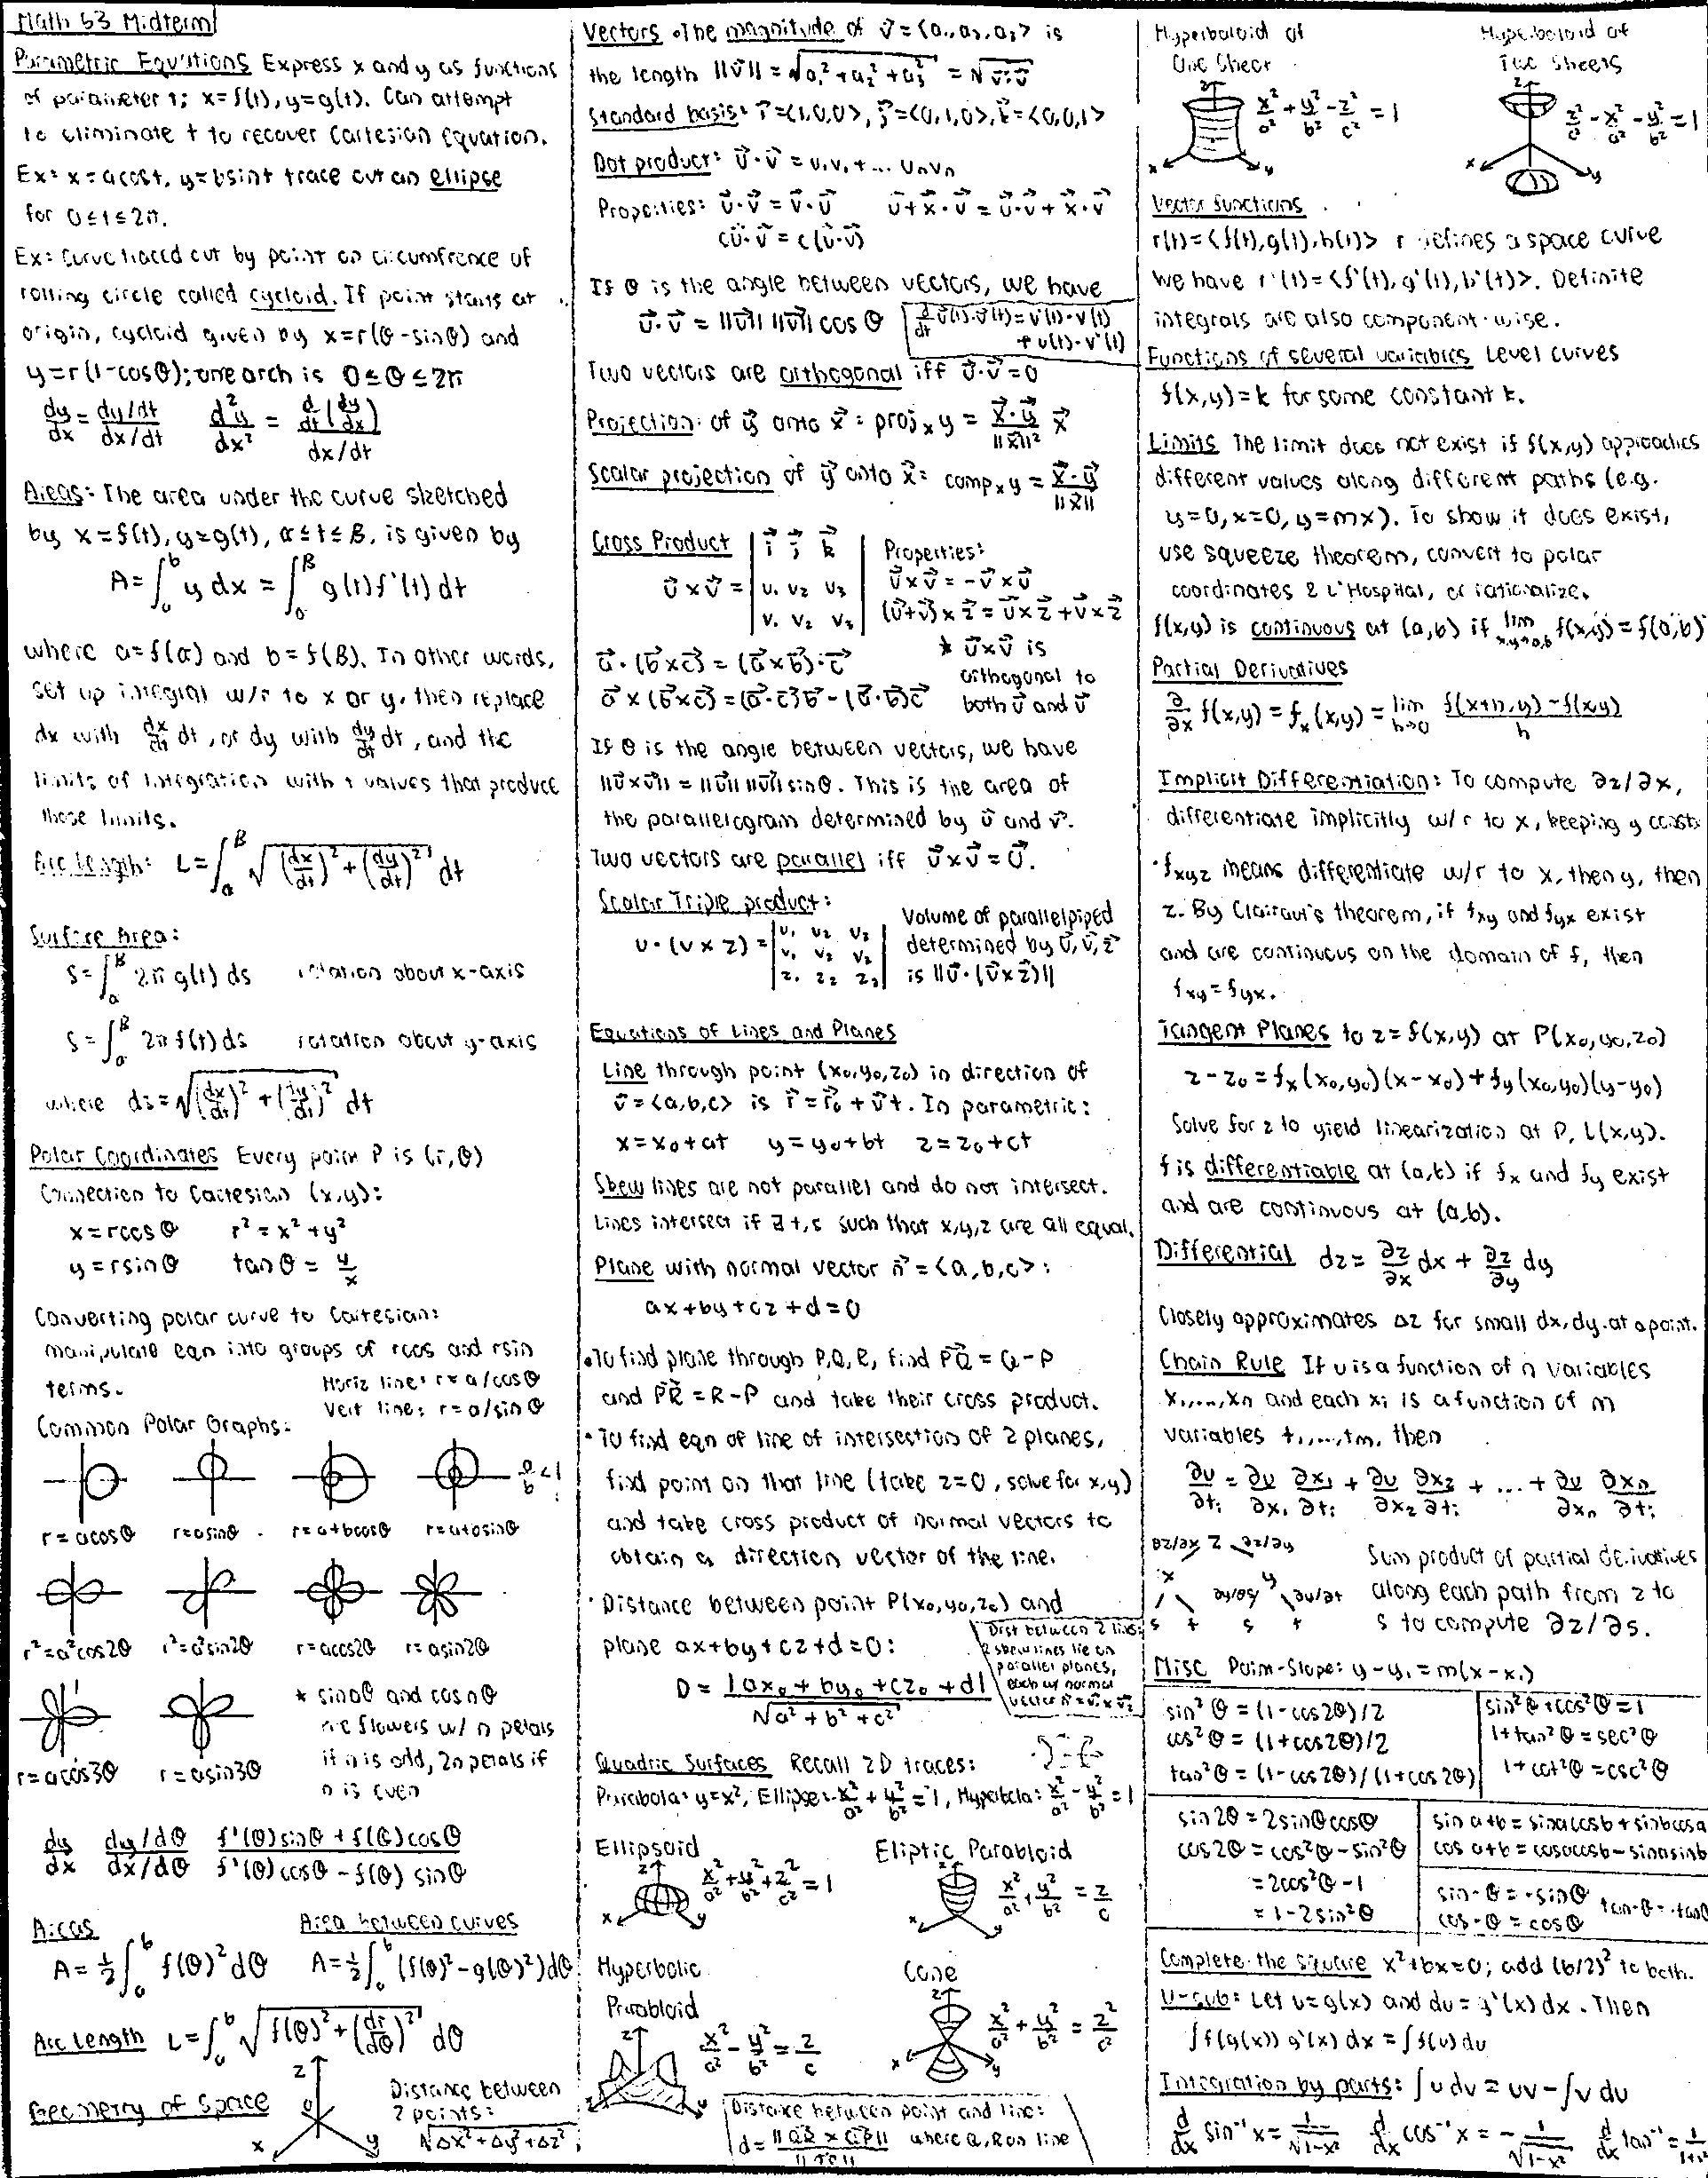 Math 53 Midterm
Parametric Equations Express x and y as functions
of parameter t; x=f(t), y=g(t). Can attempt
to eliminate t to recover Cartesian Equation.
Ex: x=acost, y=bsint trace out an ellipse
for 0≤t≤2π.
Ex: Curve traced out by point on circumfrence of
rolling circle called cycloid. If point starts at
origin, cycloid given by x=r(θ-sinθ) and
y=r(1-cosθ); one arch is 0≤θ≤2π
dy/dx = (dy/dt)/(dx/dt)   d²y/dx² = (d/dt(dy/dx))/(dx/dt)
Areas: The area under the curve sketched
by x=f(t), y=g(t), α≤t≤β, is given by
A=∫_a^b y dx = ∫_α^β g(t)f'(t)dt
where a=f(α) and b=f(β). In other words,
set up integral w/r to x or y, then replace
dx with dx/dt dt, or dy with dy/dt dt, and the
limits of integration with t values that produce
those limits.
Arc Length: L=∫_α^β √((dx/dt)²+(dy/dt)²) dt
Surface Area:
S=∫_α^β 2π g(t) ds   rotation about x-axis
S=∫_α^β 2π f(t) ds   rotation about y-axis
where ds=√((dx/dt)²+(dy/dt)²) dt
Polar Coordinates Every point P is (r,θ)
Connection to Cartesian (x,y):
x=rcosθ   r²=x²+y²
y=rsinθ   tanθ=y/x
Converting polar curve to Cartesian:
manipulate eqn into groups of rcos and rsin
terms.
Horiz line: r=a/cosθ
Vert line: r=a/sinθ
Common Polar Graphs:
a/b<1
r=acosθ   r=asinθ   r=a+bcosθ   r=a+bsinθ
r²=a²cos2θ   r²=a²sin2θ   r=acos2θ   r=asin2θ
* sinnθ and cosnθ
are flowers w/ n petals
if n is odd, 2n petals if
n is even
r=acos3θ   r=asin3θ
dy/dx   (dy/dθ)/(dx/dθ)   (f'(θ)sinθ+f(θ)cosθ)/(f'(θ)cosθ-f(θ)sinθ)
Areas   Area between curves
A=½∫_a^b f(θ)²dθ   A=½∫_a^b (f(θ)²-g(θ)²)dθ
Arc Length L=∫_a^b √(f(θ)²+(dr/dθ)²) dθ
Geometry of Space
z
0
x y
Distance between
2 points:
√(Δx²+Δy²+Δz²)
Vectors •The magnitude of v⃗=<a₁,a₂,a₃> is
the length ||v⃗||=√(a₁²+a₂²+a₃²)=√(v⃗·v⃗)
Standard basis: i⃗=<1,0,0>, j⃗=<0,1,0>, k⃗=<0,0,1>
Dot product: u⃗·v⃗=u₁v₁+...uₙvₙ
Properties: u⃗·v⃗=v⃗·u⃗   u⃗+x⃗·v⃗=u⃗·v⃗+x⃗·v⃗
cu⃗·v⃗=c(u⃗·v⃗)
If θ is the angle between vectors, we have
u⃗·v⃗=||u⃗|| ||v⃗|| cosθ
d/dt u⃗(t)·v⃗(t)=u'(t)·v(t)
+u(t)·v'(t)
Two vectors are orthogonal iff u⃗·v⃗=0
Projection: of y⃗ onto x⃗: projₓy=(x⃗·y⃗)/||x⃗||² x⃗
Scalar projection of y⃗ onto x⃗: compₓy=(x⃗·y⃗)/||x⃗||
Cross Product
u⃗×v⃗ = | i⃗ j⃗ k⃗ | u₁ u₂ u₃ | v₁ v₂ v₃ |
Properties:
u⃗×v⃗=-v⃗×u⃗
(u⃗+v⃗)×z⃗=u⃗×z⃗+v⃗×z⃗
* u⃗×v⃗ is
orthogonal to
both u⃗ and v⃗
a⃗·(b⃗×c⃗)=(a⃗×b⃗)·c⃗
a⃗×(b⃗×c⃗)=(a⃗·c⃗)b⃗-(a⃗·b⃗)c⃗
If θ is the angle between vectors, we have
||u⃗×v⃗||=||u⃗|| ||v⃗||sinθ. This is the area of
the parallelogram determined by u⃗ and v⃗.
Two vectors are parallel iff u⃗×v⃗=0⃗.
Scalar Triple product:
u·(v×z)= | u₁ u₂ u₃ | v₁ v₂ v₃ | z₁ z₂ z₃ |
Volume of parallelpiped
determined by u⃗,v⃗,z⃗
is ||u⃗·(v⃗×z⃗)||
Equations of Lines and Planes
Line through point (x₀,y₀,z₀) in direction of
v⃗=<a,b,c> is r⃗=r⃗₀+v⃗t. In parametric:
x=x₀+at   y=y₀+bt   z=z₀+ct
Skew lines are not parallel and do not intersect.
Lines intersect if ∃t,s such that x,y,z are all equal.
Plane with normal vector n⃗=<a,b,c>:
ax+by+cz+d=0
•To find plane through P,Q,R, find PQ⃗=Q-P
and PR⃗=R-P and take their cross product.
•To find eqn of line of intersection of 2 planes,
find point on that line (take z=0, solve for x,y)
and take cross product of normal vectors to
obtain a direction vector of the line.
•Distance between point P(x₀,y₀,z₀) and
plane ax+by+cz+d=0:
D=|ax₀+by₀+cz₀+d|/√(a²+b²+c²)
Dist between 2 lines:
2 skew lines lie on
parallel planes,
each w/ normal
vector n⃗=v⃗₁×v⃗₂
Quadric Surfaces Recall 2D traces:
Parabola: y=x², Ellipse: x²/a²+y²/b²=1, Hyperbola: x²/a²-y²/b²=1
Ellipsoid
x²/a²+y²/b²+z²/c²=1
Eliptic Parabloid
x²/a²+y²/b²=z/c
Hyperbolic
Parabloid
x²/a²-y²/b²=z/c
Cone
x²/a²+y²/b²=z²/c²
Distance between point and line:
d=||QR⃗×QP⃗|| where Q,R on line
Hyperboloid of
One Sheet
x²/a²+y²/b²-z²/c²=1
Hyperboloid of
Two Sheets
z²/c²-x²/a²-y²/b²=1
Vector functions
r(t)=<f(t),g(t),h(t)> r defines a space curve
We have r'(t)=<f'(t),g'(t),h'(t)>. Definite
integrals are also component-wise.
Functions of several variables Level curves
f(x,y)=k for some constant k.
Limits The limit does not exist if f(x,y) approaches
different values along different paths (e.g.
y=0,x=0,y=mx). To show it does exist,
use squeeze theorem, convert to polar
coordinates & L'Hospital, or rationalize.
f(x,y) is continuous at (a,b) if lim_{x,y→a,b} f(x,y)=f(a,b)
Partial Derivatives
∂/∂x f(x,y)=fₓ(x,y)=lim_{h→0} (f(x+h,y)-f(x,y))/h
Implicit Differentiation: To compute ∂z/∂x,
differentiate implicitly w/r to x, keeping y const.
•f_xyz means differentiate w/r to x, then y, then
z. By Clairaut's theorem, if f_xy and f_yx exist
and are continuous on the domain of f, then
f_xy=f_yx.
Tangent Planes to z=f(x,y) at P(x₀,y₀,z₀)
z-z₀=fₓ(x₀,y₀)(x-x₀)+f_y(x₀,y₀)(y-y₀)
Solve for z to yield linearization at P, L(x,y).
f is differentiable at (a,b) if fₓ and f_y exist
and are continuous at (a,b).
Differential dz=∂z/∂x dx+∂z/∂y dy
Closely approximates Δz for small dx,dy at a point.
Chain Rule If u is a function of n variables
x₁,...,xₙ and each xᵢ is a function of m
variables t₁,...,tm, then
∂u/∂tᵢ=∂u/∂x₁ ∂x₁/∂tᵢ+∂u/∂x₂ ∂x₂/∂tᵢ+...+∂u/∂xₙ ∂xₙ/∂tᵢ
∂z/∂x z ∂z/∂y
x y
∂y/∂s ∂y/∂t
s t s t
Sum product of partial derivatives
along each path from z to
s to compute ∂z/∂s.
Misc Point-Slope: y-y₁=m(x-x₁)
sin²θ=(1-cos2θ)/2
cos²θ=(1+cos2θ)/2
tan²θ=(1-cos2θ)/(1+cos2θ)
sin²θ+cos²θ=1
1+tan²θ=sec²θ
1+cot²θ=csc²θ
sin2θ=2sinθcosθ
cos2θ=cos²θ-sin²θ
=2cos²θ-1
=1-2sin²θ
sin a+b=sinacosb+sinbcosa
cos a+b=cosacosb-sinasinb
sin-θ=-sinθ   tan-θ=-tanθ
cos-θ=cosθ
Complete the square x²+bx=0; add (b/2)² to both.
U-sub: Let u=g(x) and du=g'(x)dx. Then
∫f(g(x))g'(x)dx=∫f(u)du
Integration by parts: ∫u dv=uv-∫v du
d/dx sin⁻¹x=1/√(1-x²)   d/dx cos⁻¹x=-1/√(1-x²)   d/dx tan⁻¹=1/1+x²